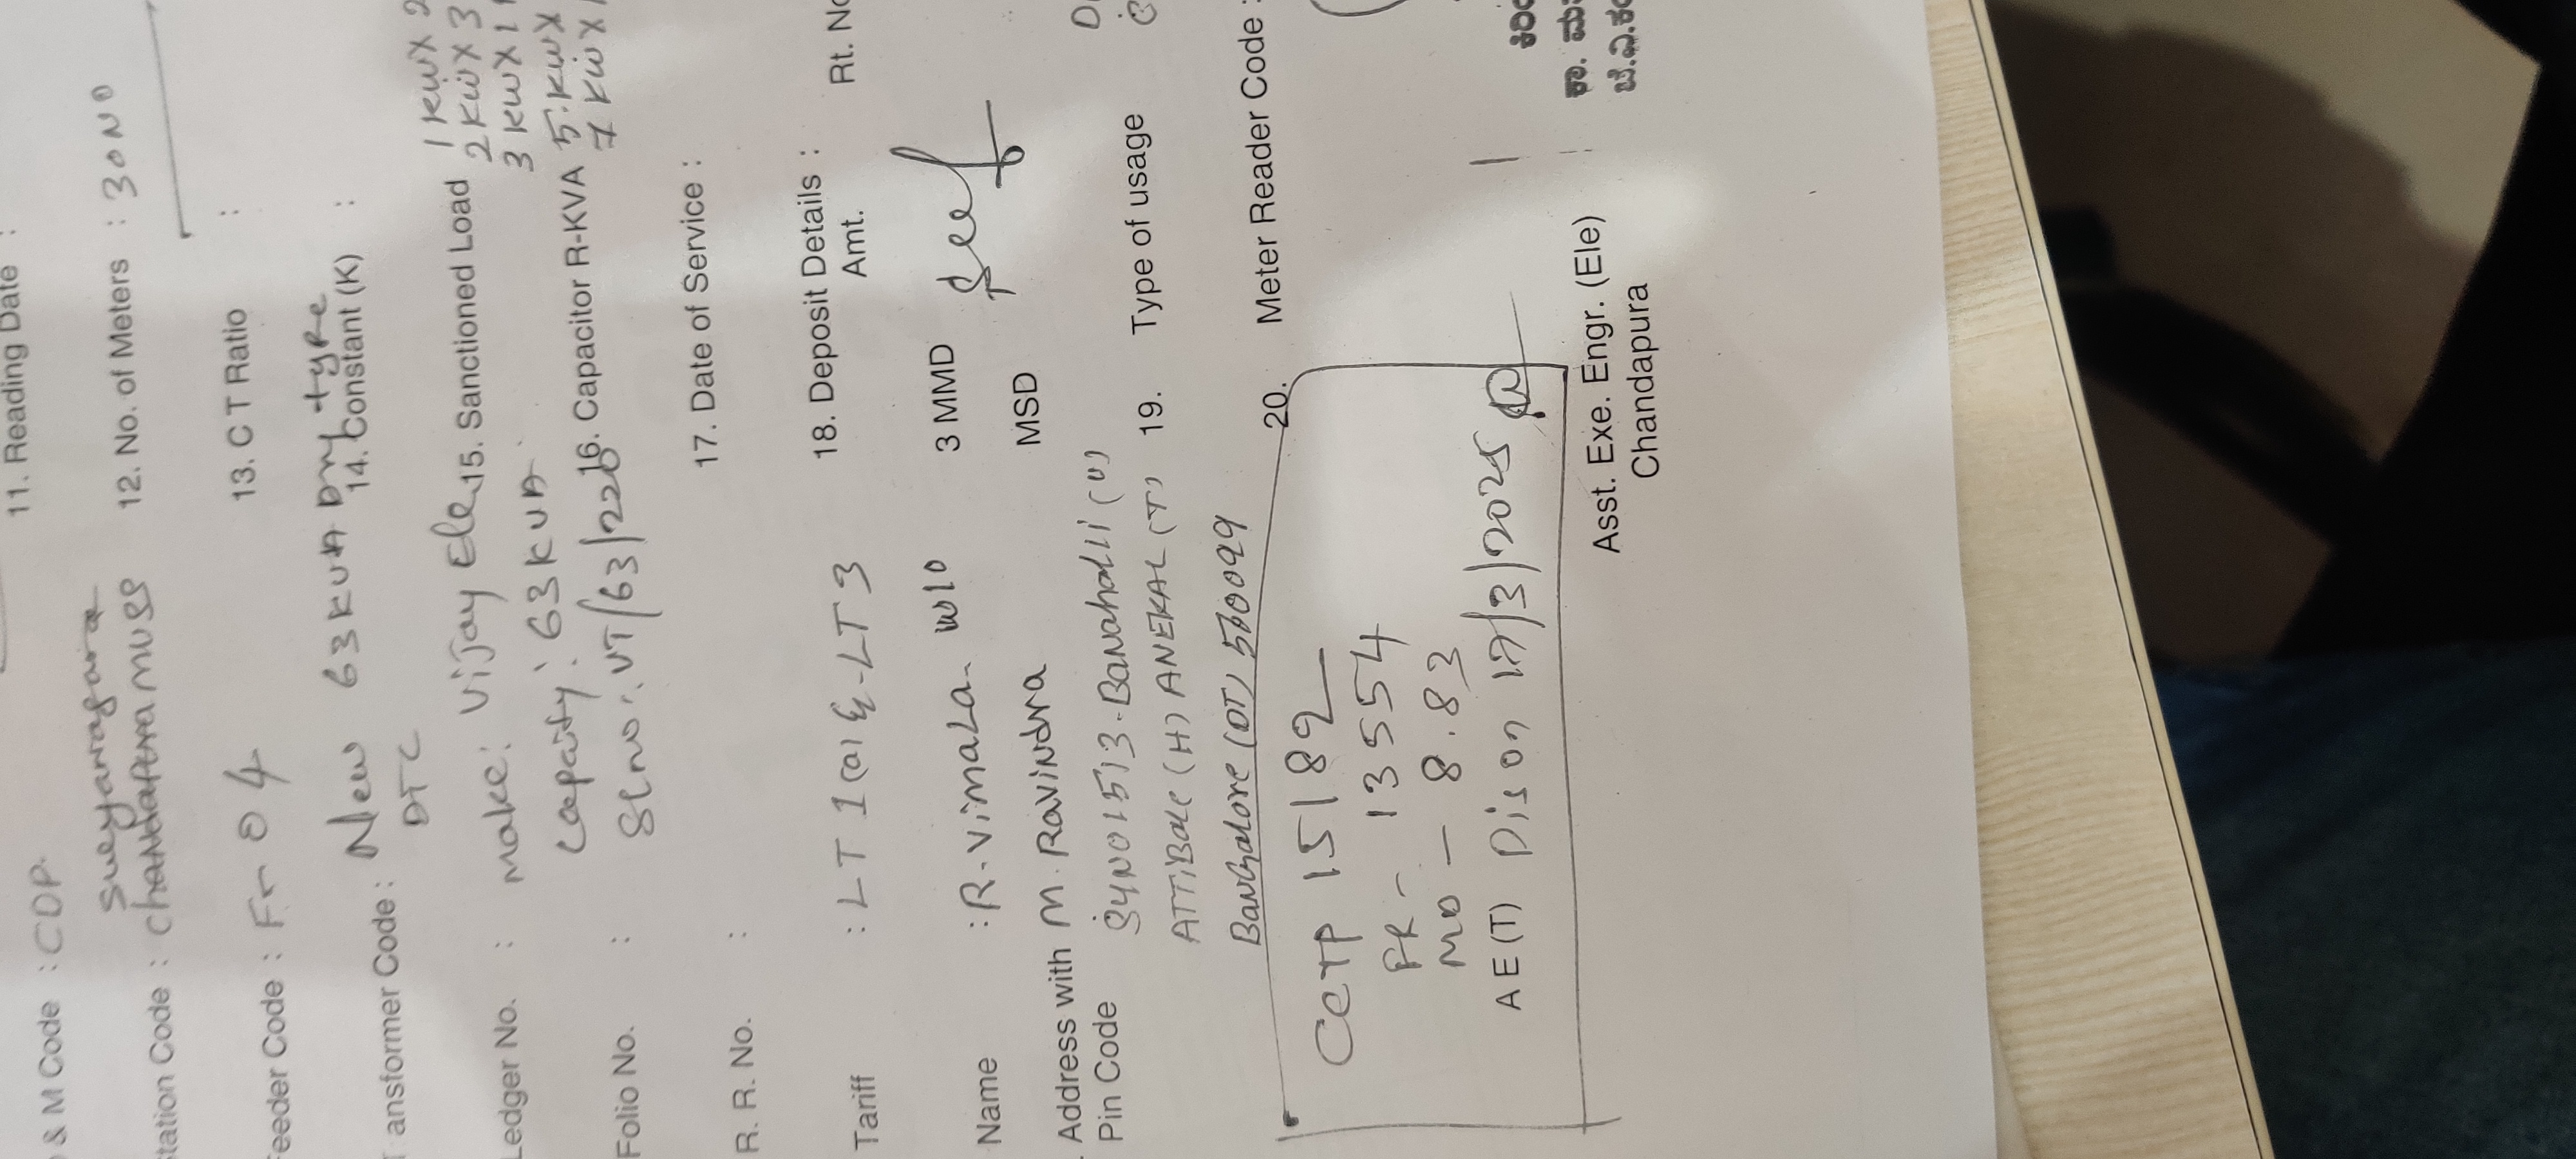 & M Code : CDP
11. Reading Date :
Sueyanagara
Station Code : Chandapura muss
12. No. of Meters : 30 NO
Feeder Code : Fr 04
13. C T Ratio :
ansformer Code : New 63 KVA Dry type
DTC
14. Constant (K) :
Ledger No. : Make: Vijay Ele
15. Sanctioned Load 1 KW X 2
2 KW X 3
3 KW X 1
Capacity: 63 KVA
16. Capacitor R-KVA 5 KW X
7 KW X
Folio No. : Slno: VT/63/2226
R. R. No. :
17. Date of Service :
Tariff : LT 1(a) & LT 3
18. Deposit Details :
Amt. Rt. No
Name : R. Vimala W/o
3 MMD
Address with M. Ravindra
MSD
Pin Code SyNO 15/3 Banahalli (V)
ATTIBALE (H) ANEKAL (T)
19. Type of usage
Bangalore (DT) 560099
20. Meter Reader Code :
15189
FR - 13554
MD - 8.83
AE (T) Dis on 17/3/2025
Asst. Exe. Engr. (Ele)
Chandapura